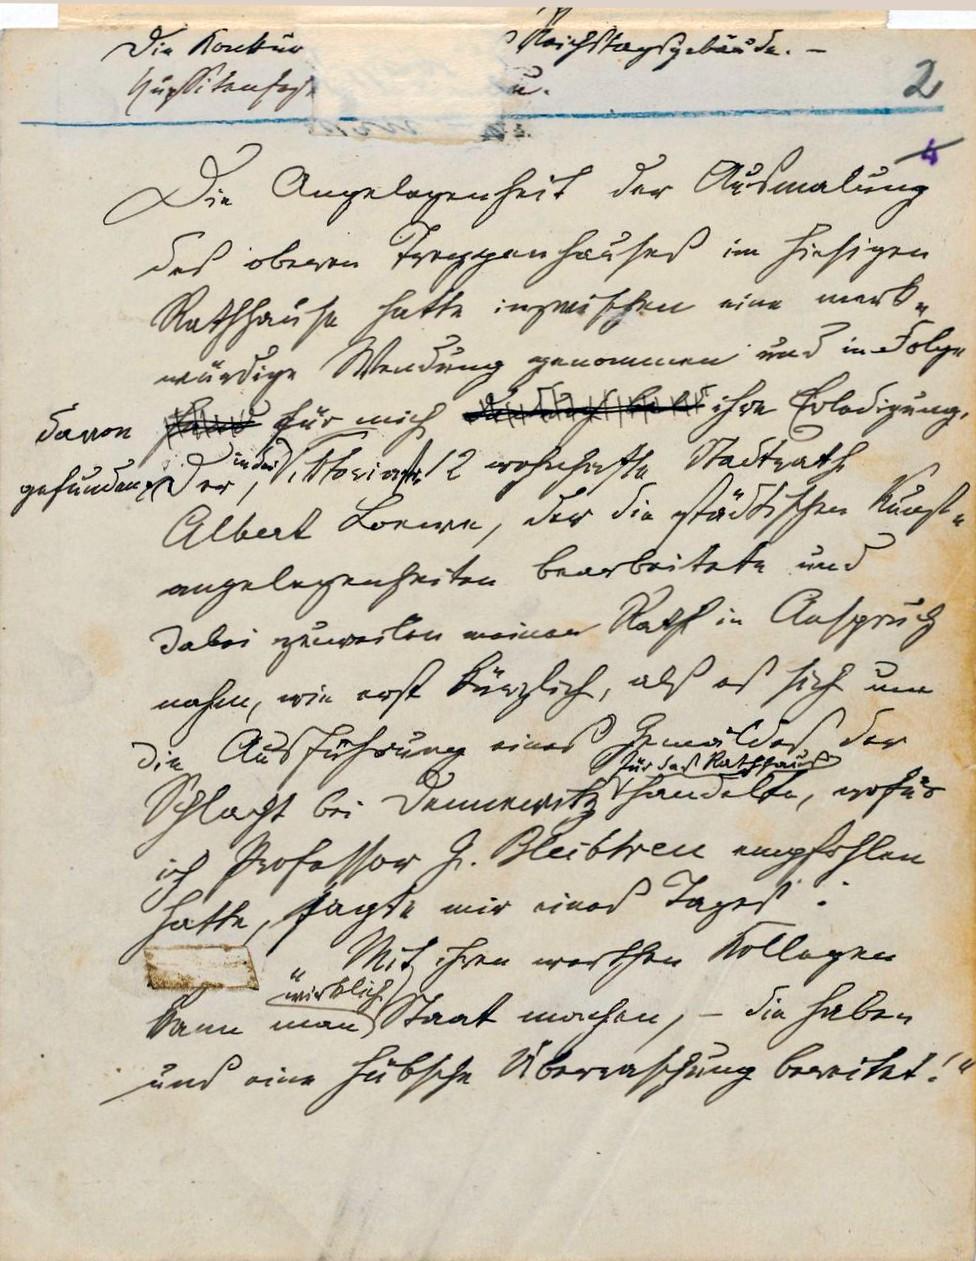 Die Konkur Reichstagsgebäude. –
Hussitenfest
2
4
Die Angelegenheit der Ausmalung
des oberen Treppenhauses im hiesigen
Rathhause hatte inzwischen eine merk-
würdige Wendung genommen und in Folge
davon für mich ihre Erledigung
gefunden. Der, in der Viktoriastr. 12 wohnhafte Stadtrath
Albert Loewe, der die städtischen Kunst-
angelegenheiten bearbeitete und
dabei zuweilen meinen Rath in Anspruch
nahm, wie erst kürzlich, als es sich um
die Ausführung eines Gemäldes der
Schlacht bei Dennewitz für das Rathhaus handelte, wofür
ich Professor G. Bleibtreu empfohlen
hatte, sagte mir eines Tages:
„Mit ihren werthen Kollegen
kann man wirklich Staat machen, – die haben
uns eine hübsche Überraschung bereitet!“